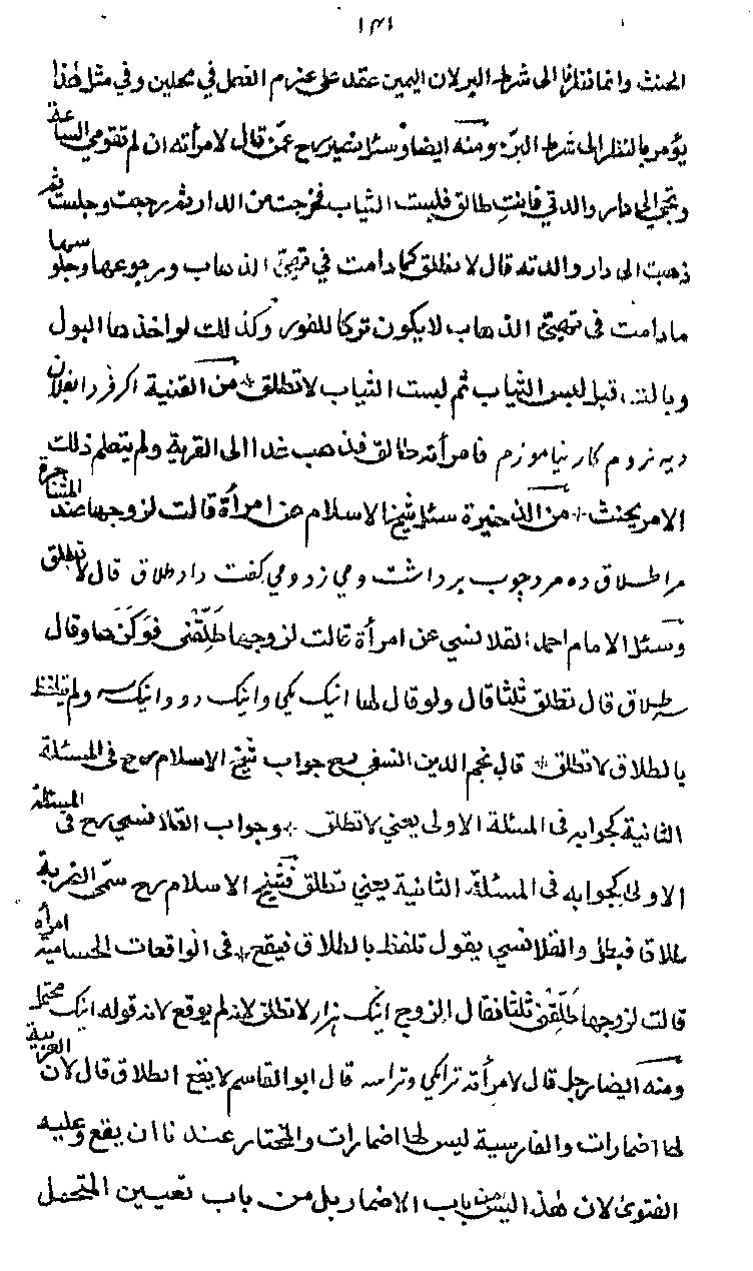 ١٣١
الحنث وانما نظرنا الى شرط البر لان اليمين عقد على عدم الفعل في محلين وفي مثل هذا
يؤمر بالنظر الى شرط البر ومنه ايضا وسئل نصير رح عمن قال لامرأته ان لم تقومي الساعة
وتجئي الى دار والدتي فانت طالق فلبست الثياب فخرجت من الدار ثم رجعت وجلست ثم
ذهبت الى دار والدته قال لا تطلق كما دامت في تهيئ الذهاب ورجوعها وجلوسها
ما دامت في تهيئ الذهاب لا يكون تركا للفور وكذلك لو اخذها البول
وبالت قبل لبس الثياب ثم لبست الثياب لا تطلق * من القنية اكر فردا بفلان
ديه نروم كار نياموزم فامرأته طالق فذهب غدا الى القرية ولم يتعلم ذلك
الامر يحنث * من الذخيرة سئل شيخ الاسلام عن امرأة قالت لزوجها عند المشاجرة
مرا طلاق ده مرد چوب برداشت ومي زد ومي كفت دار طلاق قال لا تطلق
وسئل الامام احمد القلانسي عن امرأة قالت لزوجها طلقني فوكزها وقال
سه طلاق قال تطلق ثلثا قال ولو قال لها اينك يكي واينك دو واينك سه ولم يتلفظ
بالطلاق لا تطلق * قال نجم الدين النسفي رح جواب شيخ الاسلام رح في المسئلة
الثانية كجوابه في المسئلة الاولى يعني لا تطلق * وجواب القلانسي رح في المسئلة
الاولى كجوابه في المسئلة الثانية يعني تطلق فشيخ الاسلام رح سمى الضربة
طلاقا فبطل والقلانسي يقول تلفظ بالطلاق فيقع * في الواقعات الحسامية امرأة
قالت لزوجها طلقني ثلثا فقال الزوج اينك هزار لا تطلق لانه لم يوقع لانه قوله اينك محتمل
ومنه ايضا رجل قال لامرأته ترا يكي وترا سه قال ابو القاسم لا يقع الطلاق قال لان العربية
لها اضمارات والفارسية ليس لها اضمارات والمختار عندنا ان يقع وعليه
الفتوى لان هذا ليس من باب الاضمار بل من باب تعيين المتحمل